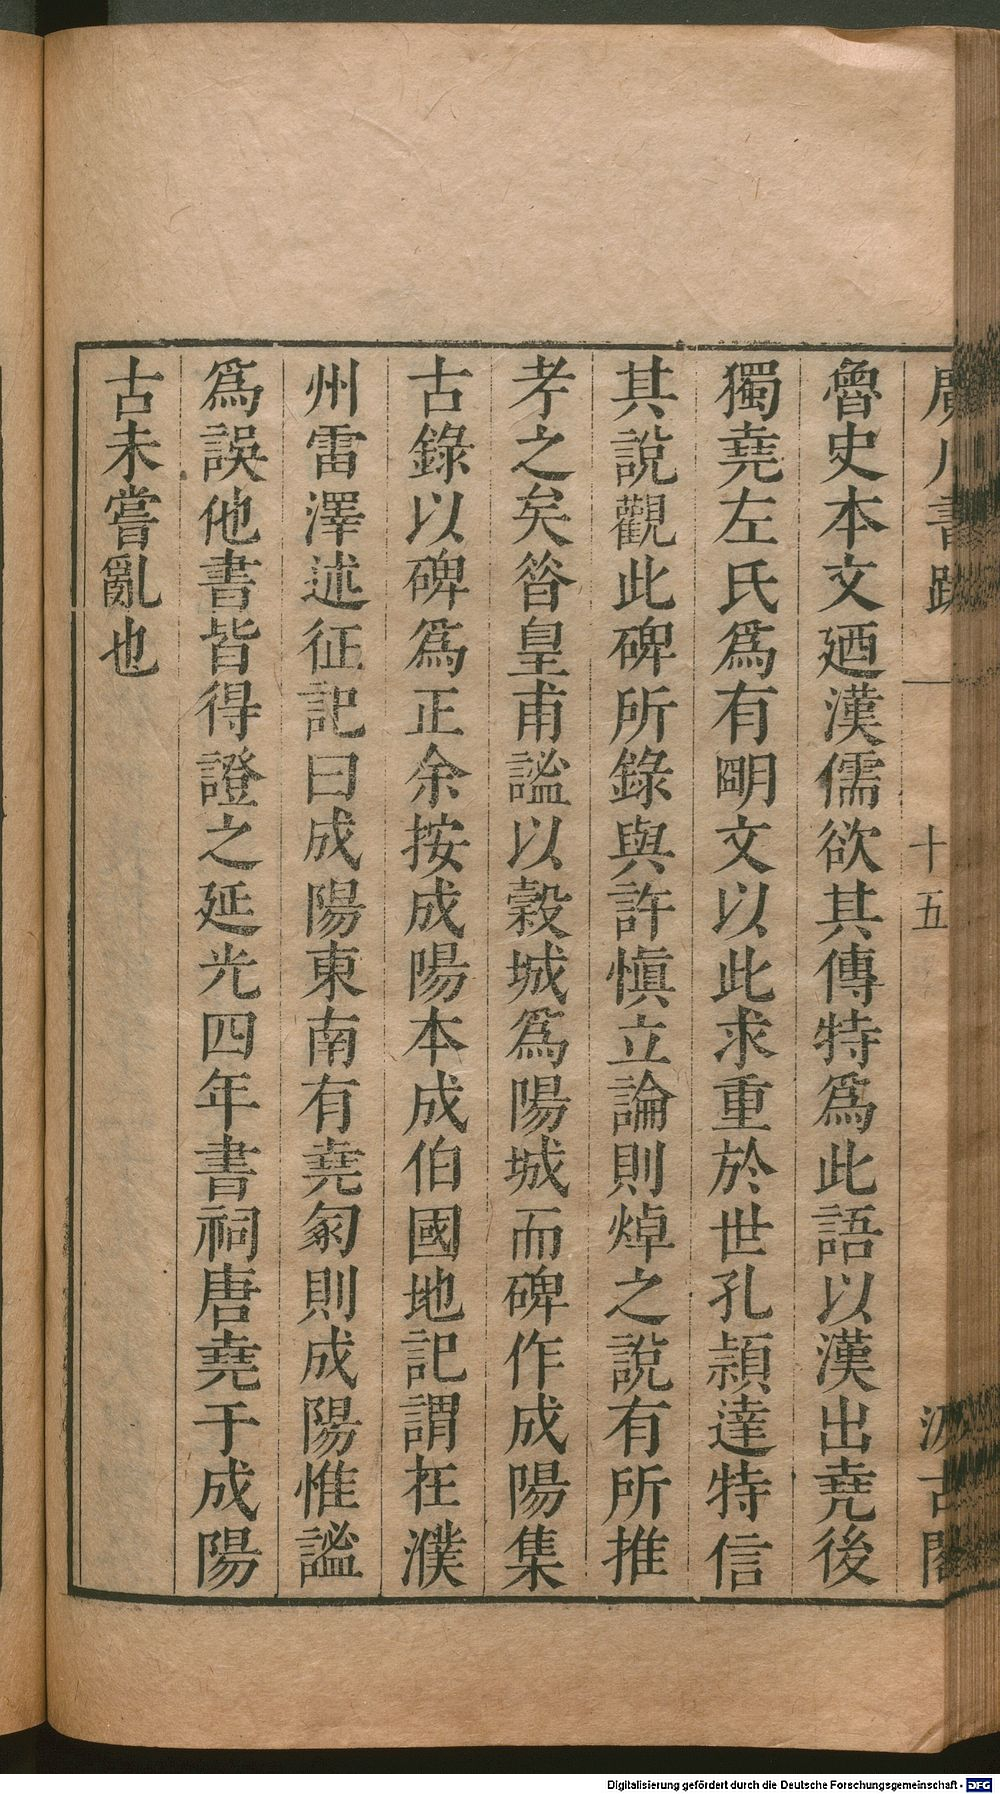 廣川書跋 一 十五 汲古閣
魯史本文廼漢儒欲其傳特爲此語以漢出堯後
獨堯左氏爲有明文以此求重於世孔頴達特信
其說觀此碑所錄與許愼立論則焯之說有所推
孝之矣昝皇甫謐以糓城爲陽城而碑作成陽集
古錄以碑爲正余按成陽本成伯國地記謂在濮
州雷澤述征記曰成陽東南有堯冢則成陽惟謐
爲誤他書皆得證之延光四年書祠唐堯于成陽
古未嘗亂也
Digitalisierung gefördert durch die Deutsche Forschungsgemeinschaft - DFG